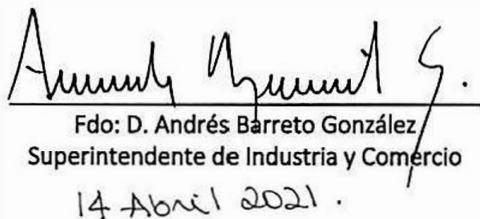 Fdo: D. Andrés Barreto González
Superintendente de Industria y Comercio
14 Abril 2021.